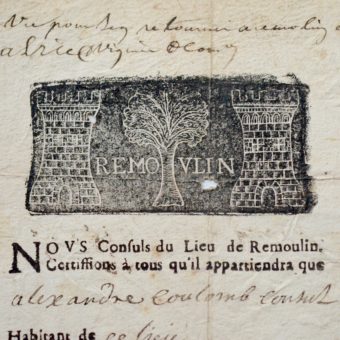 Vu pour s'en retourner a remolin
REMOVLIN
NOVS Consuls du Lieu de Remoulin.
Certifions à tous qu'il appartiendra que
alexandre coulomb consul
Habitant de ce lieu